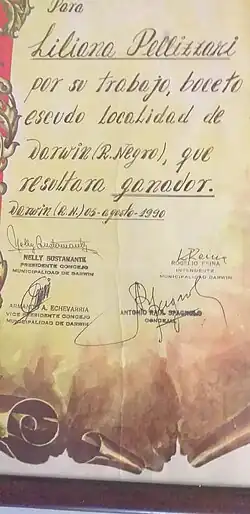 Para
Liliana Pellizzari
por su trabajo, boceto
escudo Localidad de
Darwin (R. Negro), que
resultara ganador.
Darwin (R.N.) 05-agosto-1990
Nelly Bustamante
NELLY BUSTAMANTE
PRESIDENTE CONCEJO
MUNICIPALIDAD DE DARWIN
ROGELIO
INTENDENTE
MUNICIPALIDAD DARWIN
ARMANDO A. ECHEVARRIA
VICE PRESIDENTE CONCEJO
MUNICIPALIDAD DE DARWIN
ANTONIO RAUL SPAGNOLO
CONCEJAL